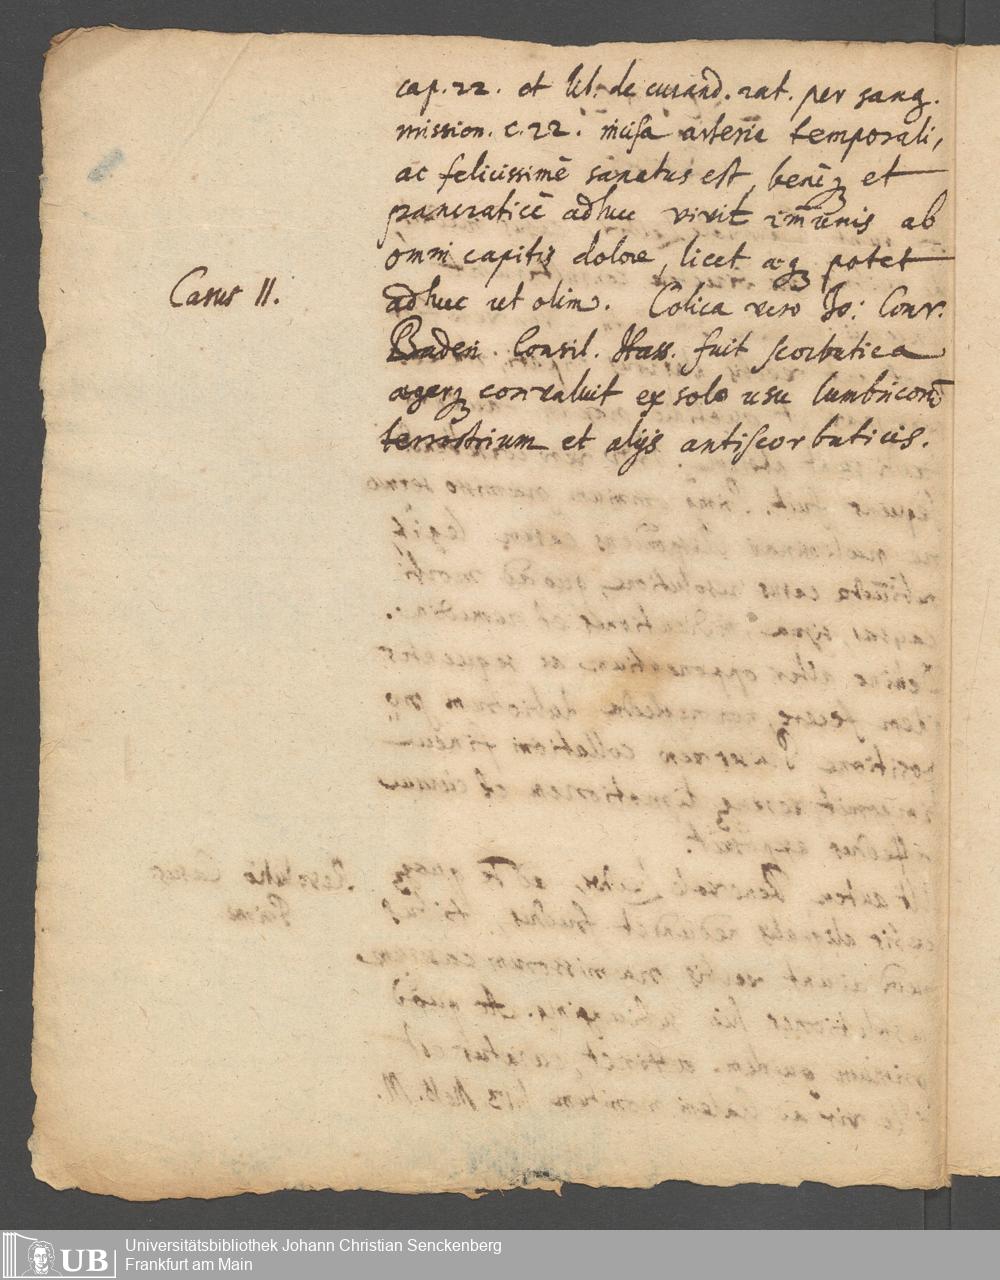 cap. 22. et lib. de curand. rat. per sang.
mission. c. 22. incisa arteria temporali,
ac felicissimè sanatus est, beneq; et
pancraticè adhuc vivit im̄unis ab
omni capitis dolore, licet aeq; potet
Casus II.
adhuc ut olim. Colica vero Jo: Conr:
Baden. Consil. Hass. fuit scorbutica
convaluit ex solo usu lumbricorū
terrestrium et alijs antiscorbuticis.
Universitätsbibliothek Johann Christian Senckenberg
Frankfurt am Main
UB